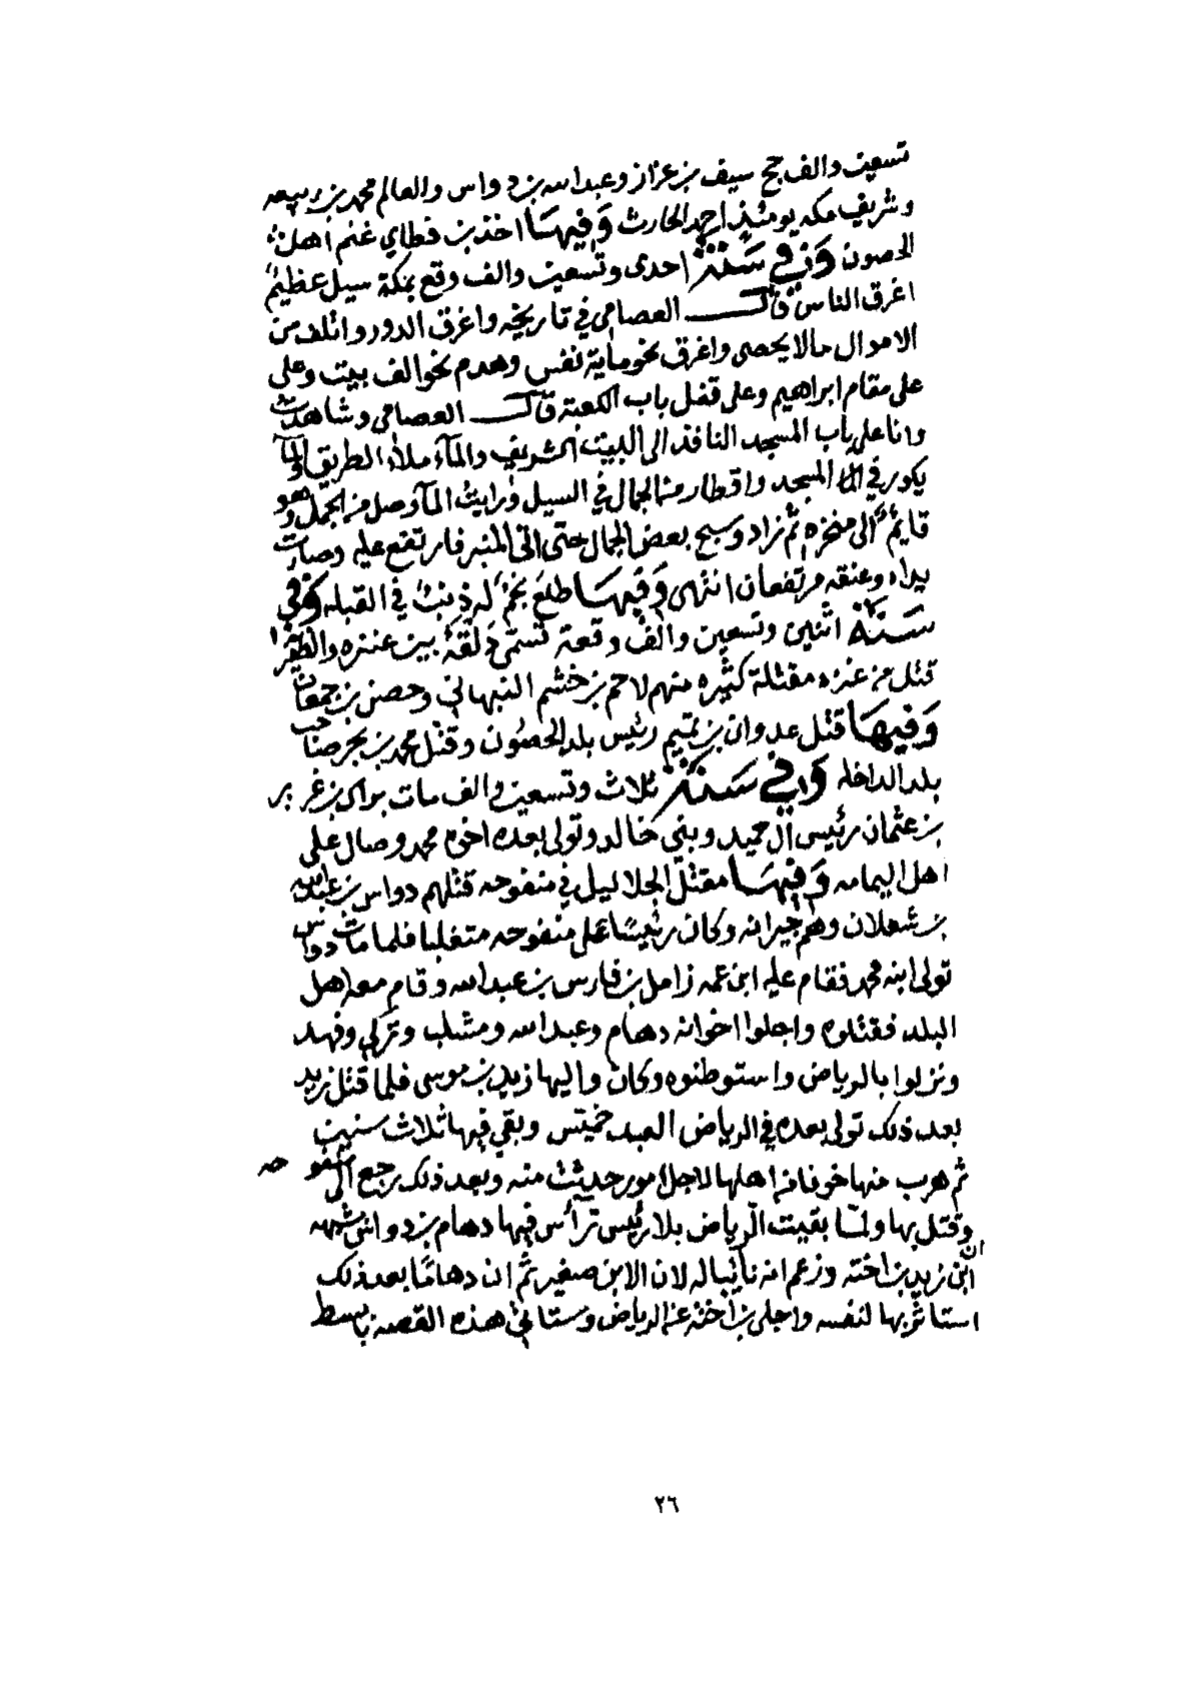 تسعين والف حج سيف بن عزاز وعبدالله بن دواس والعالم محمد بن ربيعه
وشريف مكه يومئذ احمد الحارث وَفِيهَا اخذ بن قطاي غنم اهل
الحصون وَفي سَنَة احدى وتسعين والف وقع بمكة سيل عظيم
اغرق الناس قال العصامي في تاريخه واغرق الدور واتلف من
الاموال مالا يحصى واغرق نحو ماية نفس وهدم نحو الف بيت وعلى
على مقام ابراهيم وعلى قفل باب الكعبة قال العصامي وشاهدت
وانا على باب المسجد النافذ الى البيت الشريف والمآء ملأ الطريق والمآ
يدور في المسجد واقطار من الجمال في السيل ورايت المآ وصل من الجمل وهو
قايم الى منخره ثم زاد وسبح بعض الجمال حتى اتى المنبر فارتفع عليه وصارت
يداه وعنقه مرتفعان انتهى وَفِيهَا طلع نجم له ذنب في القبله وَفي
سَنَة اثنين وتسعين والف وقعة تسمى دلقة بين عنزه والظفير
قتل من عنزه مقتلة كثيره منهم لاحم بن خشم النبهاني وحصن بن جمعان
وَفِيهَا قتل عدوان بن تميم رئيس بلد الحصون وقتل محمد بن بحر صاحب
بلد الداخله وَفي سَنَة ثلاث وتسعين والف مات براك بن غرير
بن عثمان رئيس آل حميد وبني خالد وتولى بعده اخوه محمد وصال على
اهل اليمامه وَفِيهَا مقتل الجلاليل في منفوحه قتلهم دواس بن عبدالله
بن شعلان وهم جيرانه وكان رئيسًا على منفوحه متغلبا فلما مات دواس
تولى ابنه محمد فقام عليه ابن عمه زامل بن فارس بن عبدالله وقام معه اهل
البلد فقتلوه واجلوا اخوانه دهام وعبدالله ومشلب وتركي وفهد
ونزلوا بالرياض واستوطنوه وكان واليها زيد بن موسى فلما قتل زيد
بعد ذلك تولى بعده في الرياض العبد خميس وبقي فيها ثلاث سنين
ثم هرب منها خوفا من اهلها لاجل امور حدثت منه وبعد ذلك رجع الى منفوحه
وقتل بها ولمّا بقيت الرياض بلا رئيس ترأس فيها دهام بن دواس لشبهه
ان ابن زيد بن اخته وزعم انه نائبا له لان الابن صغير ثم ان دهامًا بعد ذلك
استاثر بها لنفسه واجلى بن اخته عن الرياض وستاتي هذه القصه بابسط
٢٦